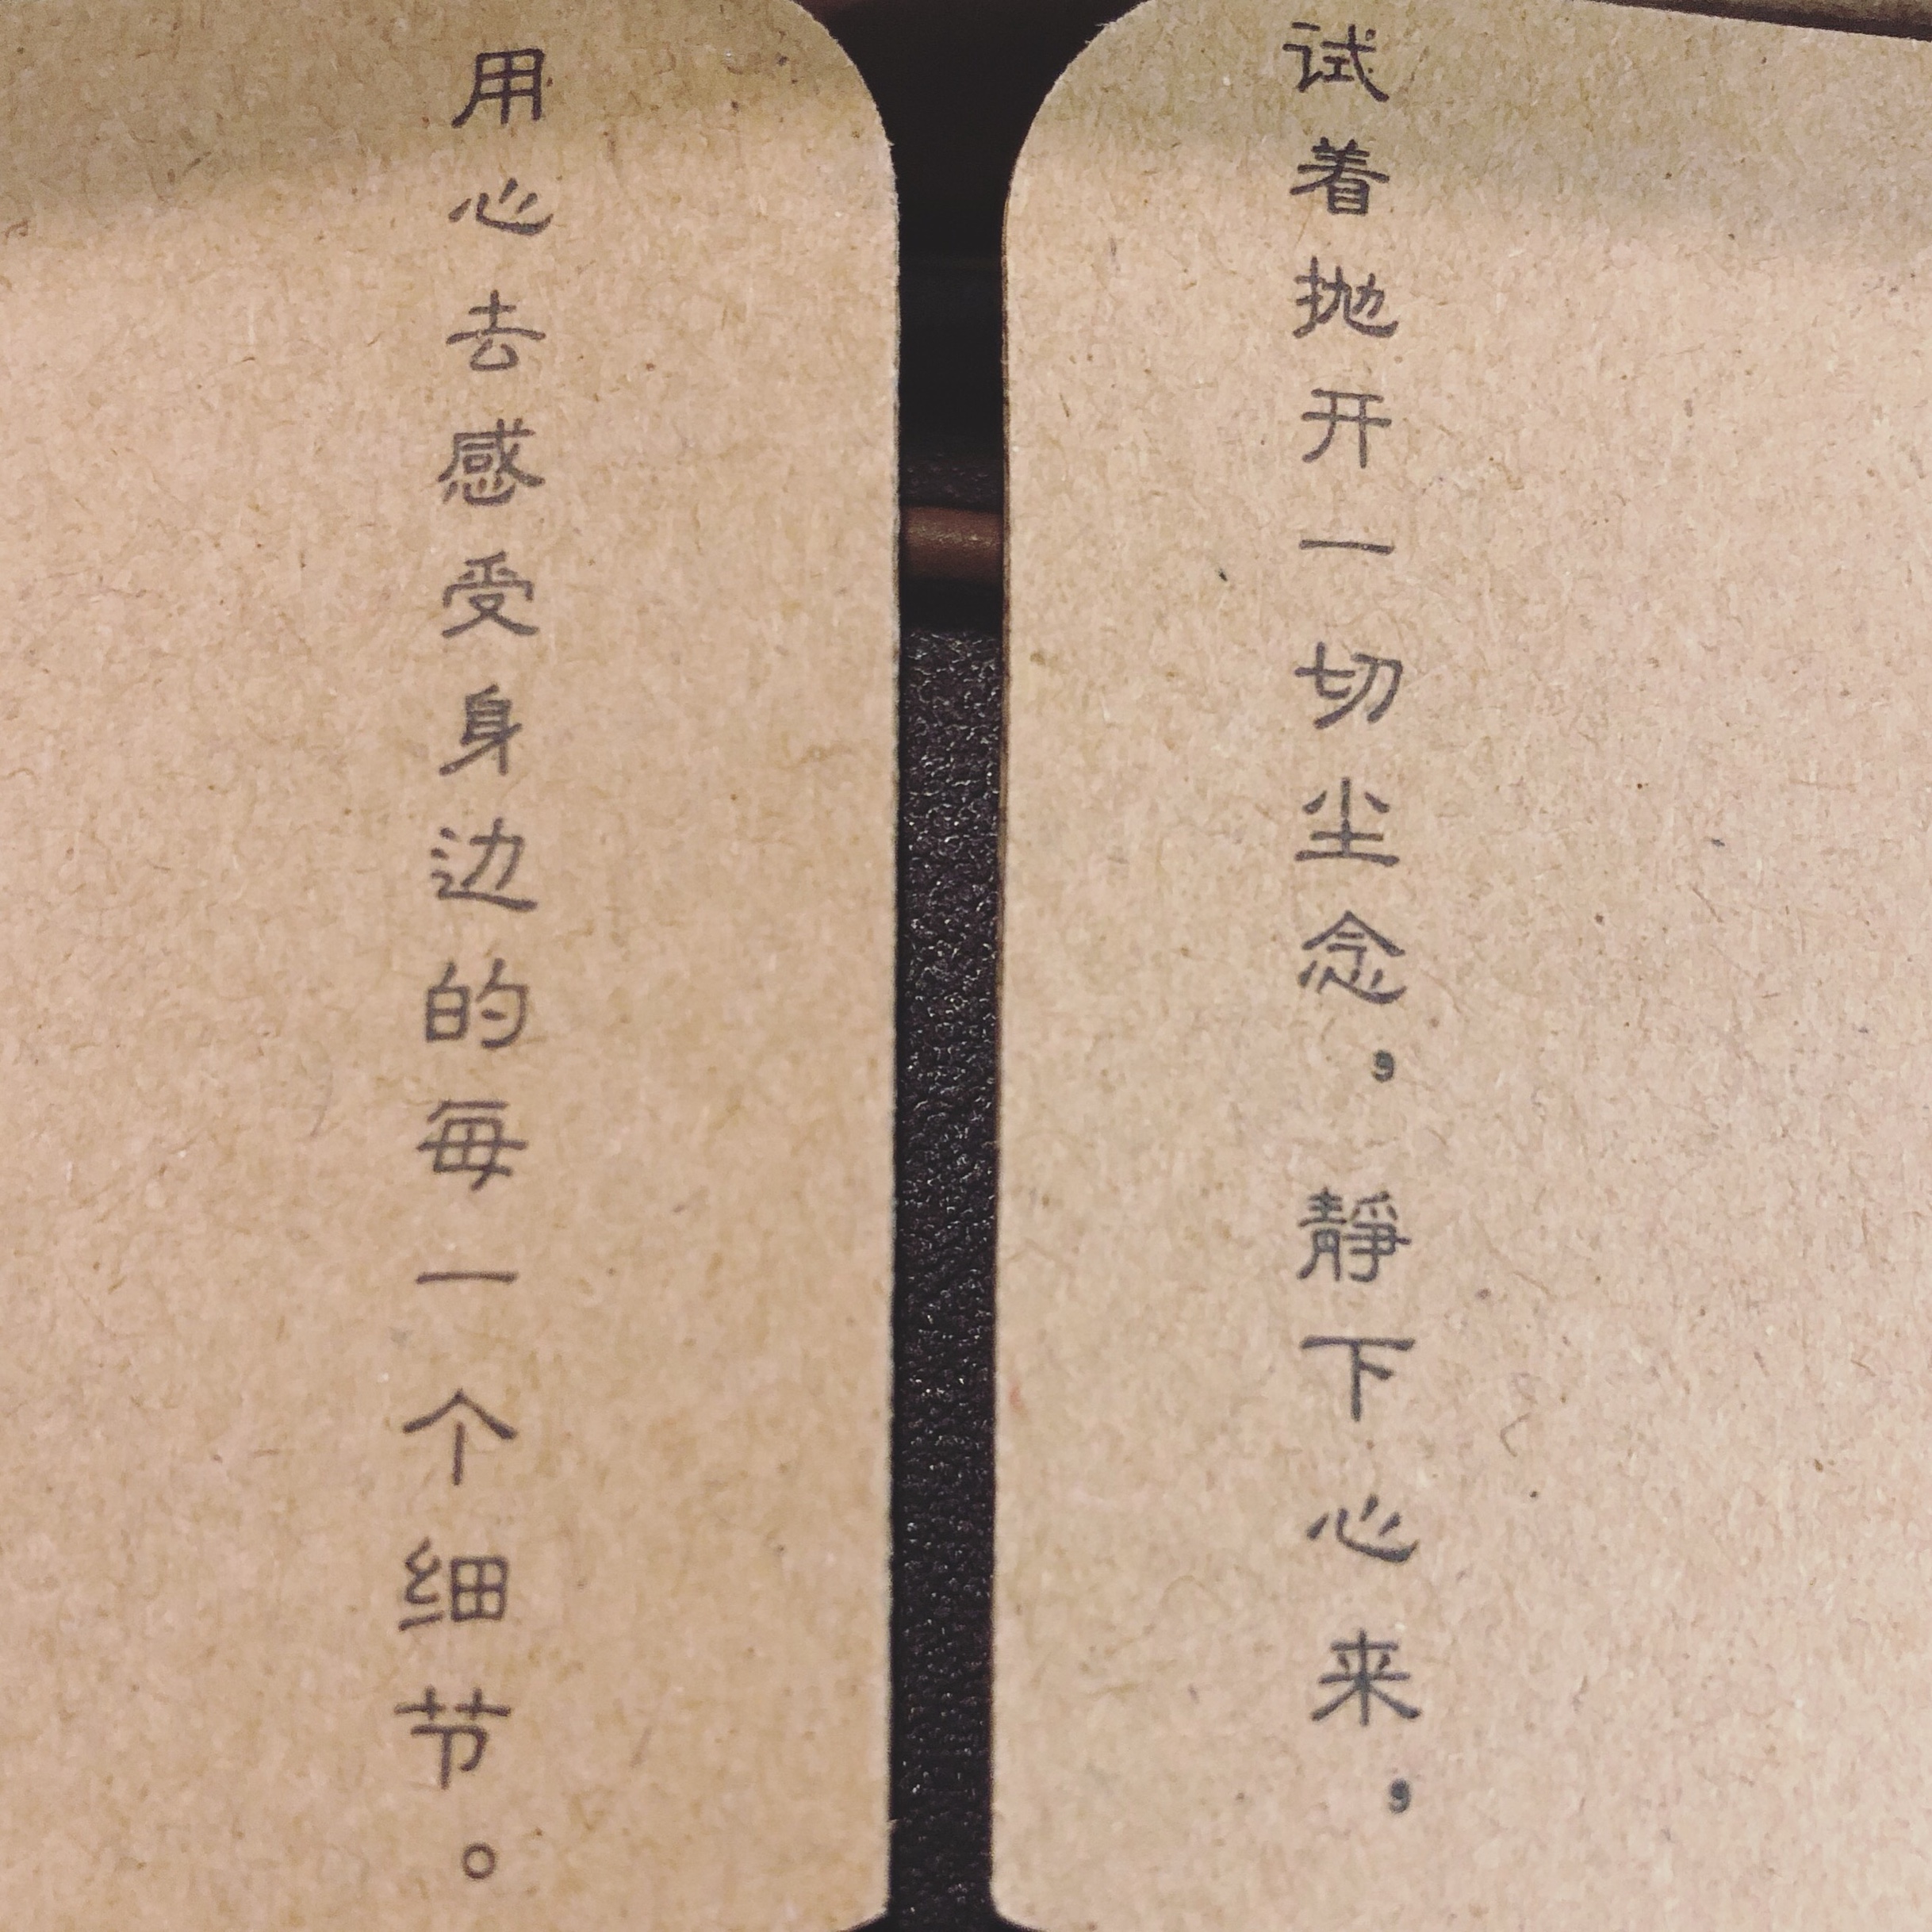 试着抛开一切尘念，静下心来，
用心去感受身边的每一个细节。